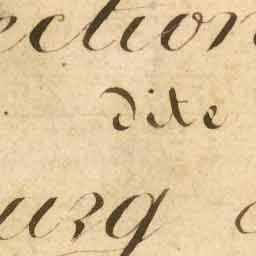 ection
dite
urg